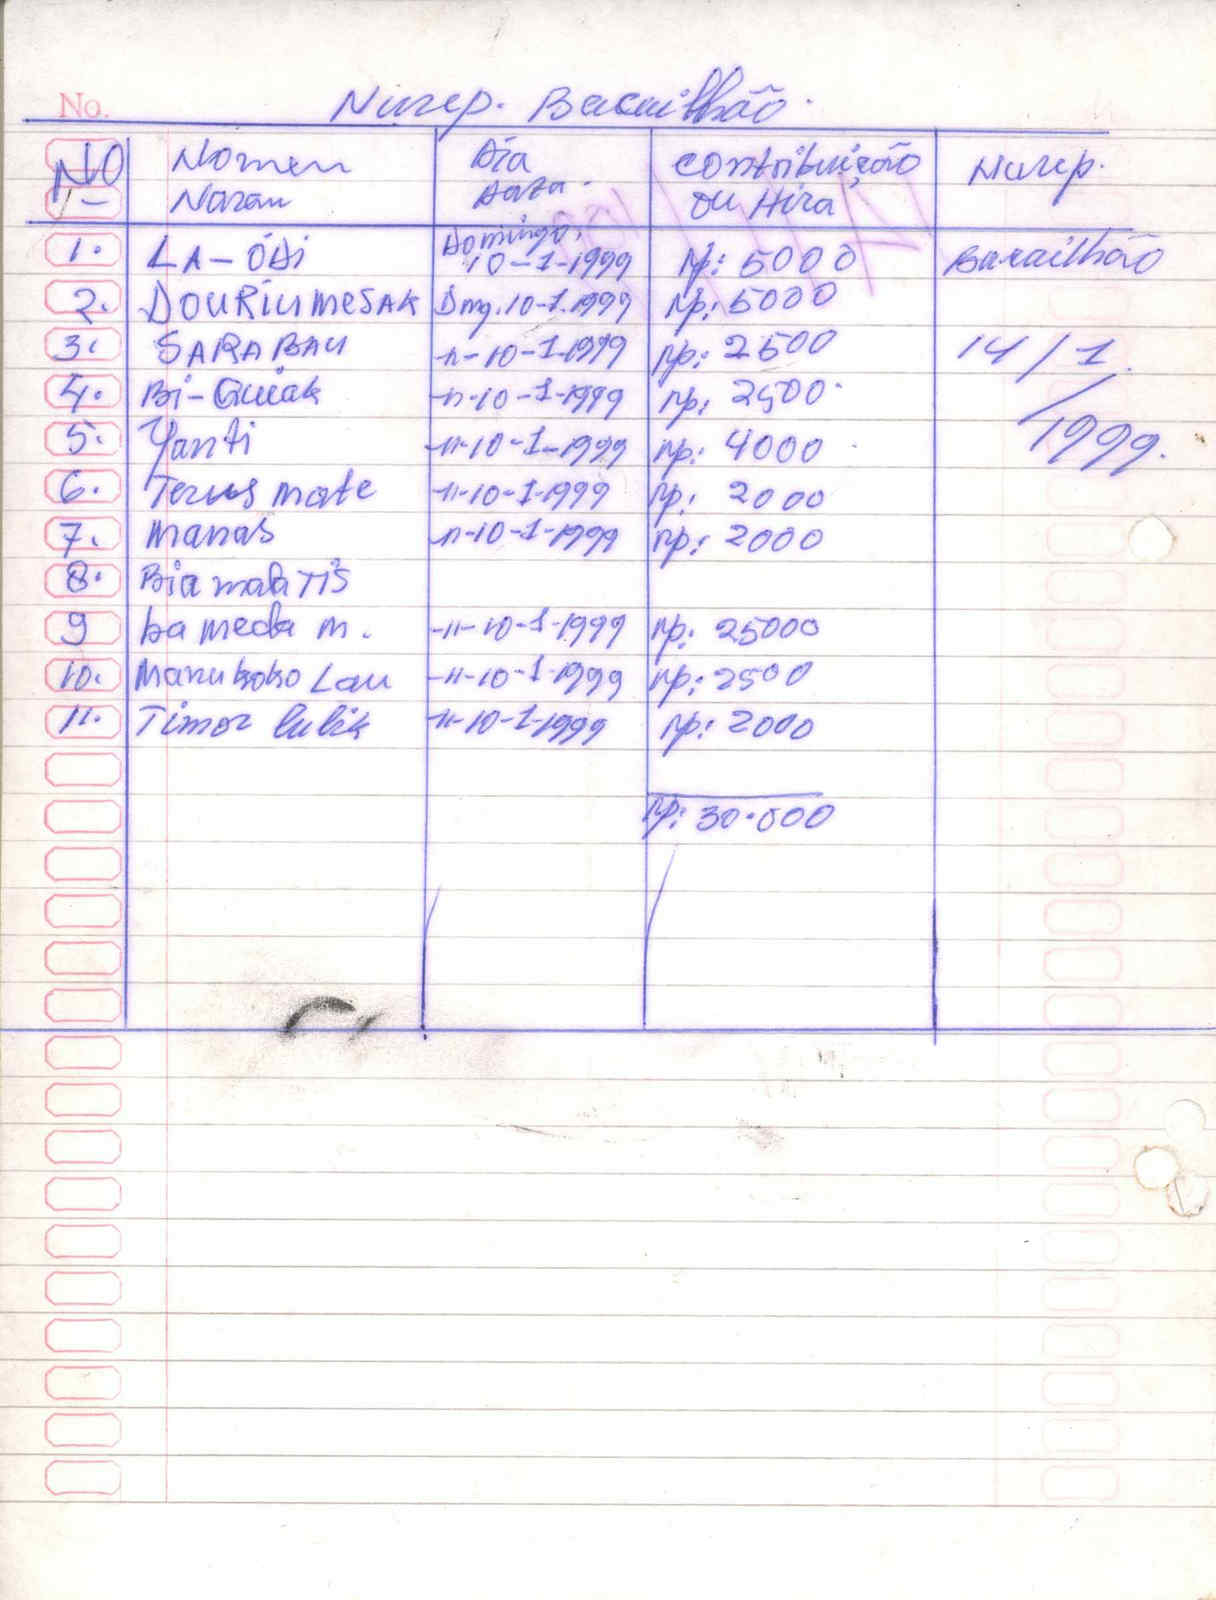 No.
Nurep. Bacailhão.
NO Nomen Día Contribuição Nurep.
1- Naran Data. Ou Hira
1. LA-ÓDi Domingo, 10-1-1999 Rp: 5000 Bacailhão
2. DOURiuMESAK Dmg. 10-1-1999 Rp: 5000
3. SARABAU -"- 10-1-1999 Rp: 2500 14/1
4. Bi-Quiak -"- 10-1-1999 Rp: 2500
5. Yanti -"- 10-1-1999 Rp: 4000 /1999.
6. Terus mate -"- 10-1-1999 Rp: 2000
7. Manas -"- 10-1-1999 Rp: 2000
8. Bia
9 La meda m. -"- 10-1-1999 Rp: 25000
10. Manukoko Lau -"- 10-1-1999 Rp: 2500
11. Timor lulik -"- 10-1-1999 Rp: 2000
Rp: 30.000